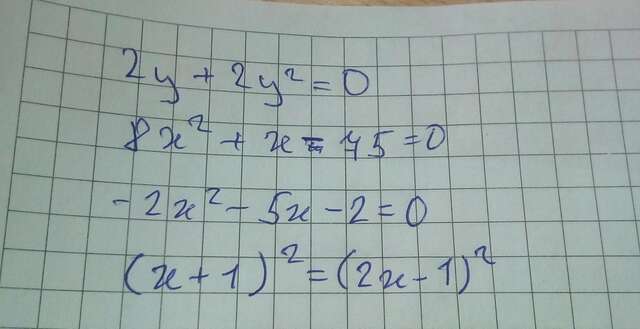 2y + 2y² = 0
8x² + x - 75 = 0
-2x² - 5x - 2 = 0
(x + 1)² = (2x - 1)²